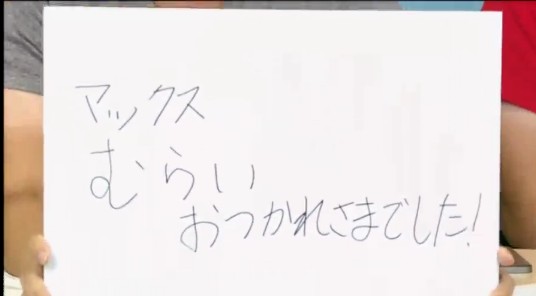 マックス
むらい
おつかれさまでした!